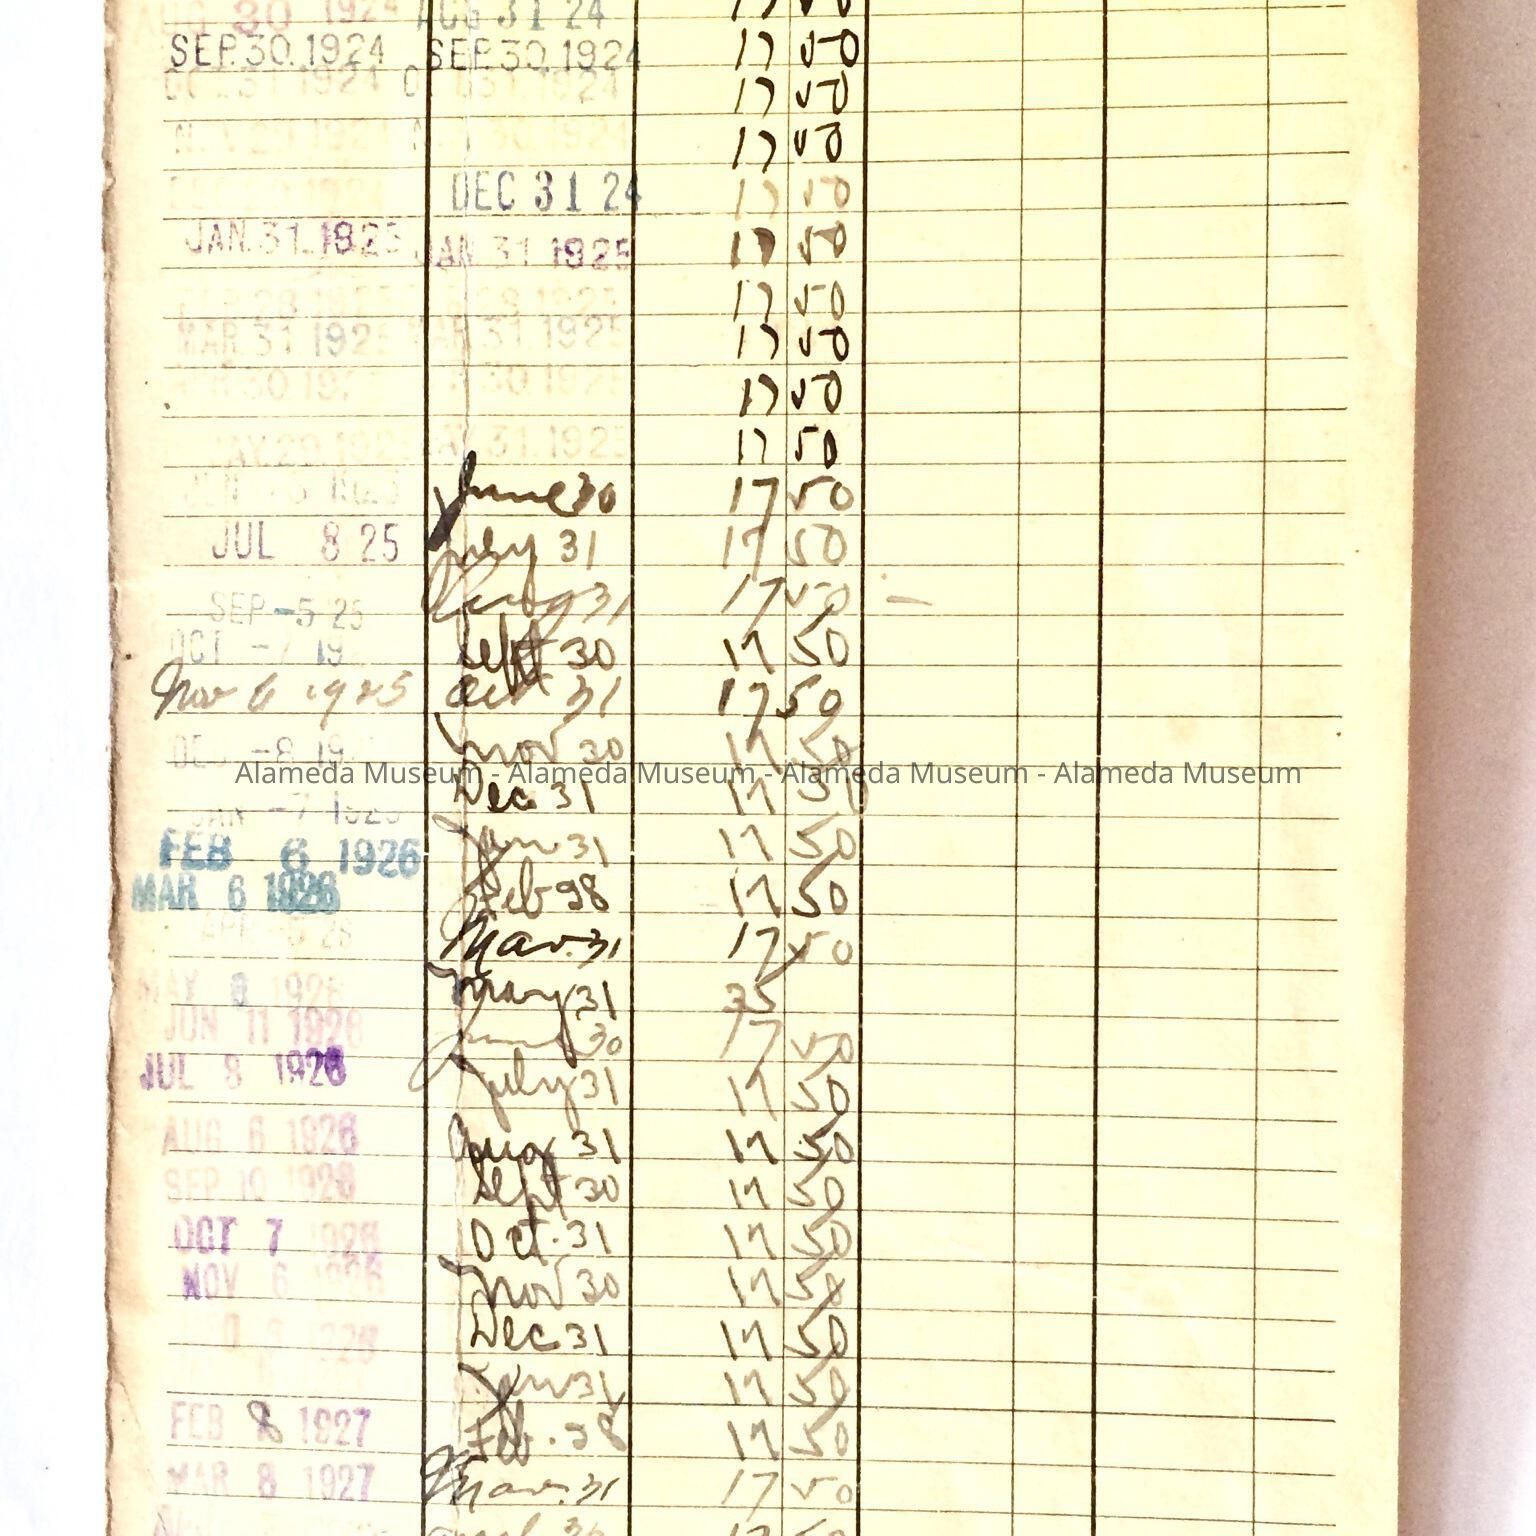 AUG 30 1924 AUG 31 24 17 50
SEP. 30. 1924 SEP. 30. 1924 17 50
OCT. 31 1924 OCT 31. 1924 17 50
NOV 29 1924 NOV 30. 1924 17 50
DEC 31 24 17 50
JAN. 31. 1925 JAN 31 1925 17 50
28 1925 28 1925 17 50
MAR. 31 1925 MAR. 31. 1925 17 50
APR 30 192 30. 1925 17 50
MAY. 29. 192 MAY. 31. 1925 17 50
JUN June 30 17 50
JUL 8 25 July 31 17 50
SEP -5 25 Aug 31 17 50 -
OCT -7 19 Sept 30 17 50
Nov 6 1925 Oct 31 17 50
DEC -8 19 Nov 30 17 50
Alameda Museum - Alameda Museum - Alameda Museum - Alameda Museum
JAN -7 1926 Dec 31 17 50
FEB 6 1926 Jan 31 17 50
MAR 6 1926 Feb 28 17 50
APR 26 Mar. 31 17 50
MAY 8 1926 May 31 35
JUN 11 1926 June 30 17 50
JUL 8 1926 July 31 17 50
AUG 6 1926 Aug 31 17 50
SEP 10 1926 Sept 30 17 50
OCT 7 1926 Oct. 31 17 50
NOV 6 1926 Nov 30 17 50
Dec 31 17 50
Jan 31 17 50
FEB 8 1927 Feb. 28 17 50
MAR 8 1927 Mar. 31 17 50
17 50